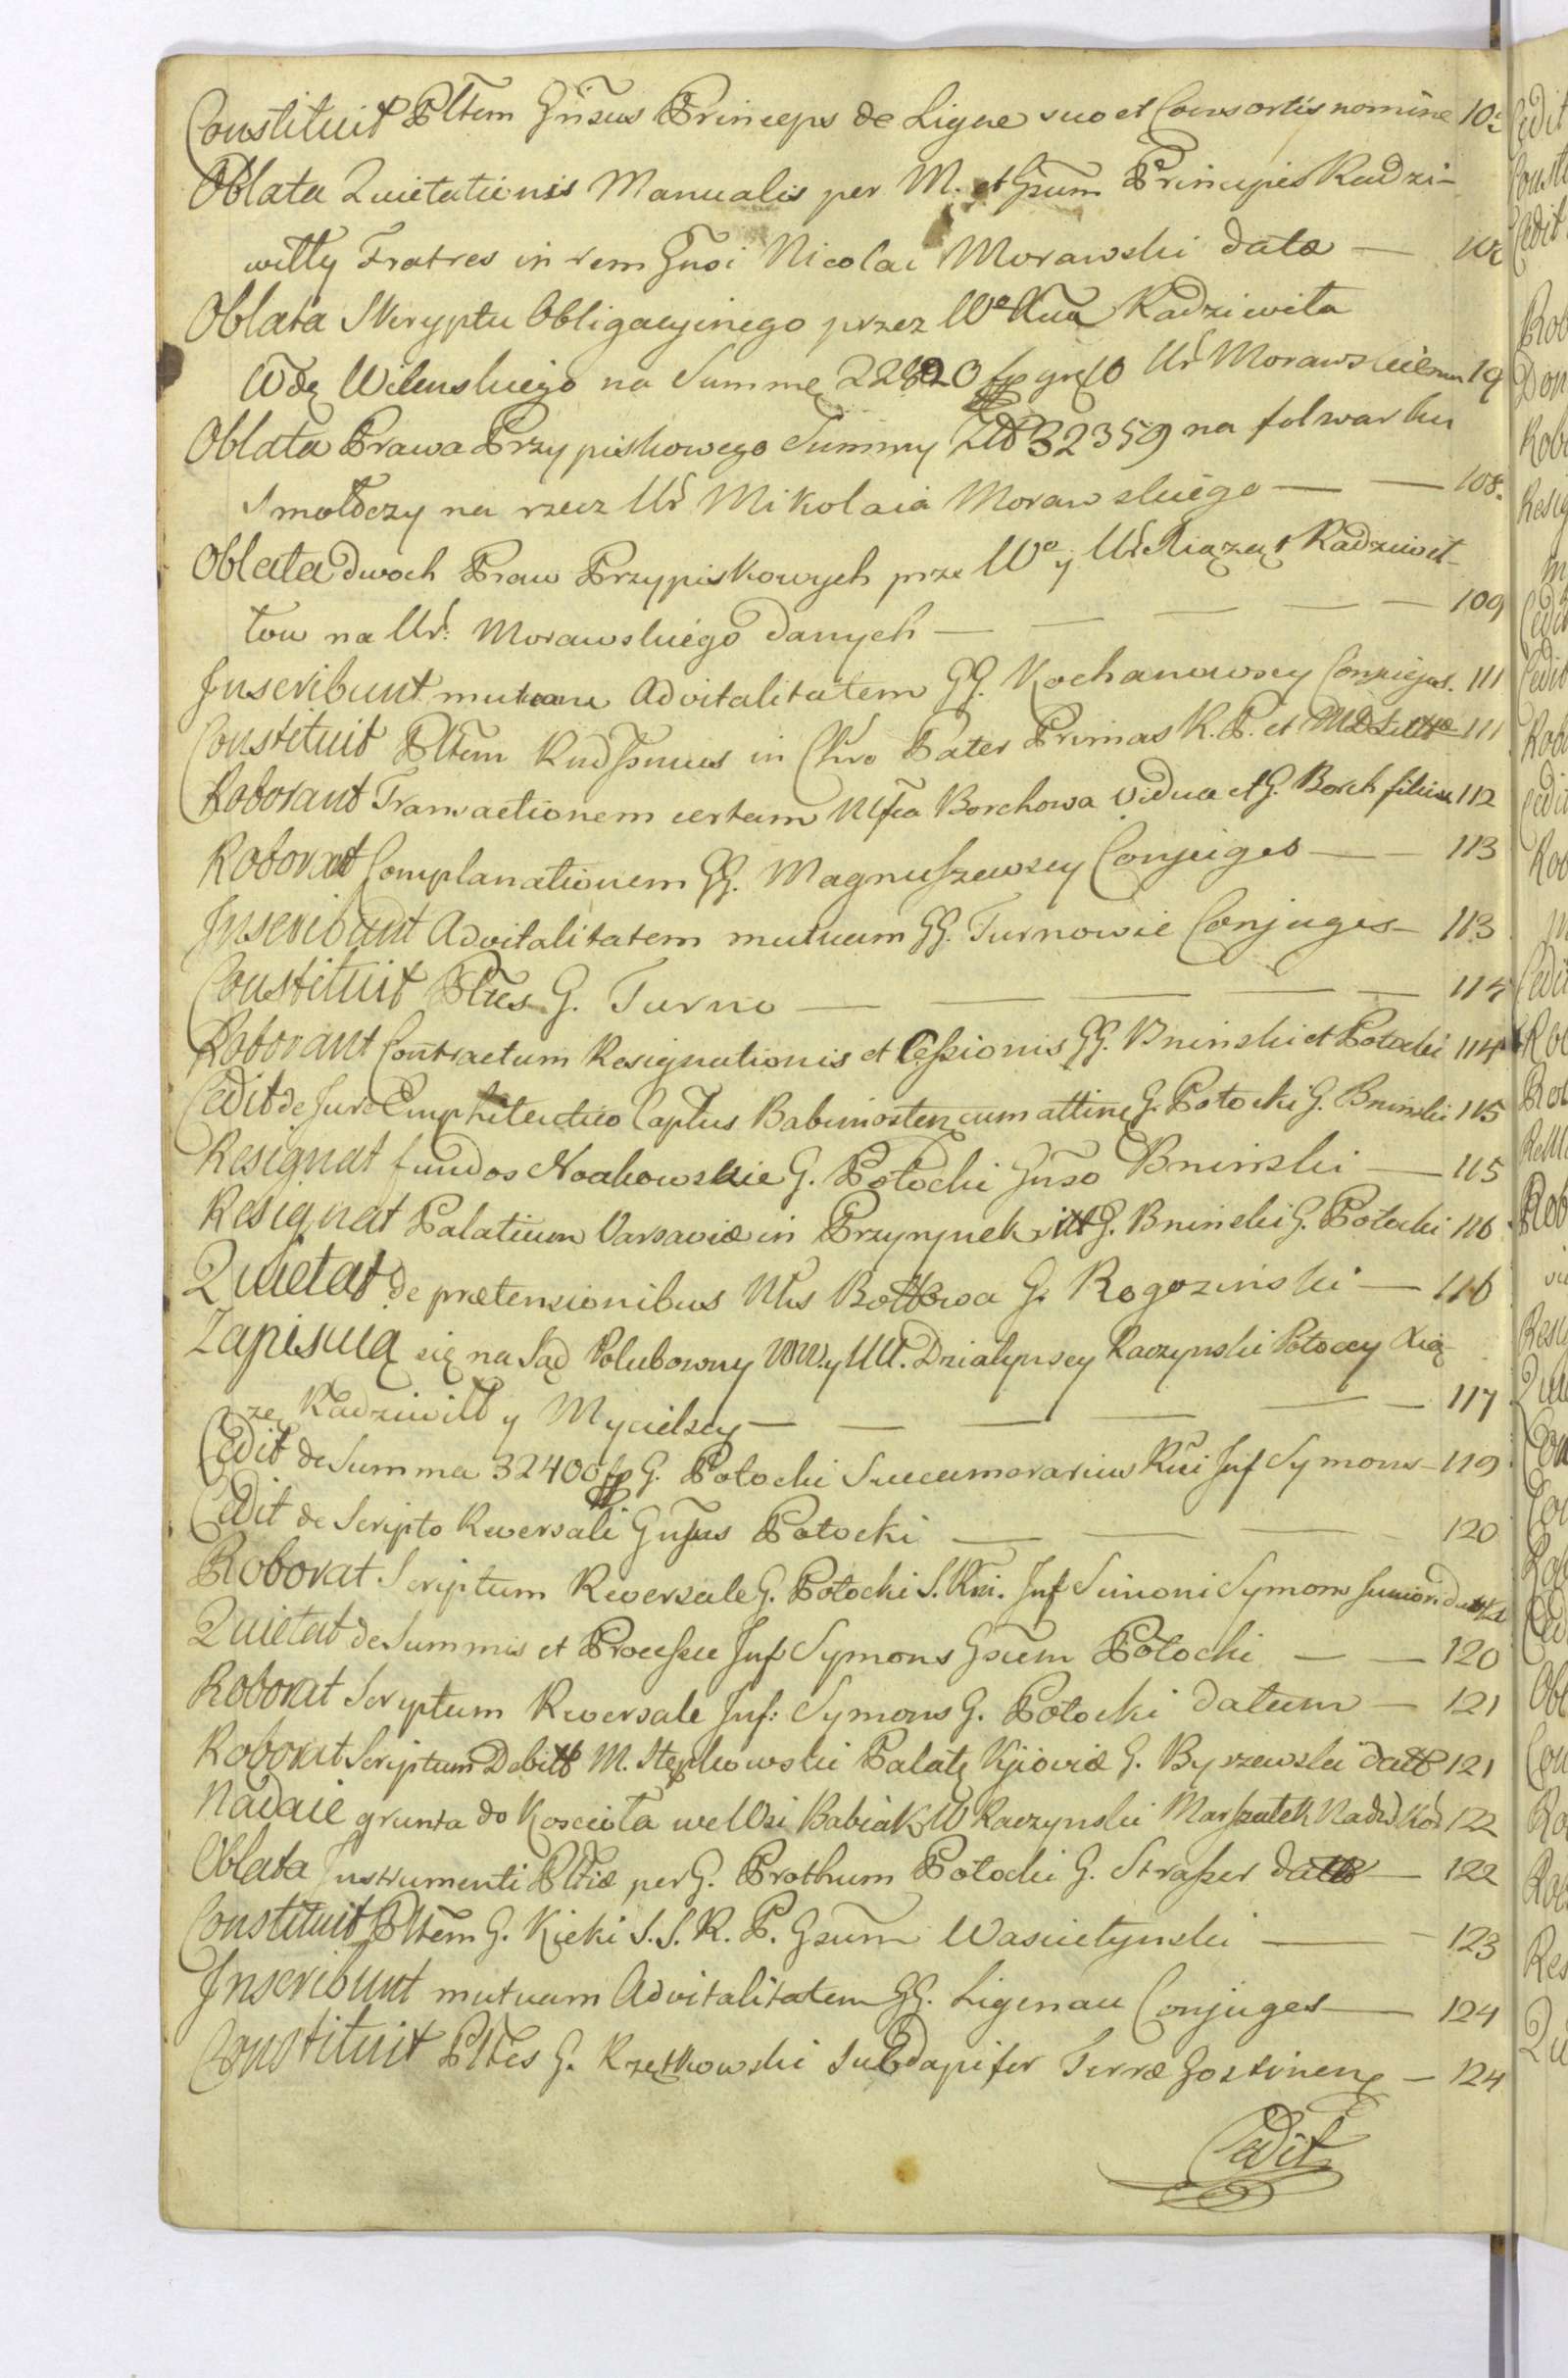 Constituit Pltem Gnsus Princeps de Ligne suo et Consortis nomine 105
Oblata Quietationis Manualis per M. et Gsum Principes Radzi-
willy Fratres in rem Gnsi Nicolai Morawski data —
Oblata Skryptu Obligacyinego przez Wo Radziwiła
Wdę Wilenskiego na Summę 22820 fp gr 10 Ur Morawskiemu
Oblata Prawa Przypiskowego Summy Zło 32359 na folwarku
Smołdczy na rzecz Ur Mikolaia Morawskiego — — 108.
Oblata dwoch Praw Przypiskowych prze Wo y Ur Xiążąt Radziwił-
łow na Ur: Morawskiego danych — — — — — 109
Inscribunt mutuam Advitalitatem GG. Kochanowscy Conjuges. 111
Constituit Pltem Rndssmus in Chro Pater Primas R. P. et M D Litt 111
Roborant Transactionem certam Mfca Borchowa Vidua et G. Borch filius 112
Roborant Complanationem GG. Magnuszewscy Conjuges — — 113
Inscribunt Advitalitatem mutuam GG. Turnowie Conjuges — 113
Constituit Pltes G. Turno — — — — — 114
Roborant Contractum Resignationis et Cessionis GG. Bninski et Potocki 114
Cedit de Jure Emphiteutico Captus Babimosten cum attinę G. Potocki G. Bninski 115
Resignat fundos Noakowskie G. Potocki Gnso Bninski — 115
Resignat Palatium Varsaviæ in Przyrynek G. Bninski G. Potocki 116
Quietat de prætensionibus Mks Bottowa G. Rogozinski — 116
Zapisuią się na Sąd Polubowny WW. y UU. Działynscy Raczynski Potoccy Xią-
żę Radziwiłł y Mycielscy — — — — — — 117
Cedit de Summa 32400 fp G. Potocki Succamerarius Rni Inf Symons — 119
Cedit de Scripto Reversali Gnsus Potocki — — — 120
Roborat Scriptum Reversale G. Potocki S. Rni. Inf Simoni Symons Juniori
Quietat de Summis et Processu Inf Symons Gsum Potocki — — 120
Roborat Scriptum Reversale Inf: Symons G. Potocki datum — 121
Roborat Scriptum Debitt M. Stępkowski Palatę Kjioviæ G. Byszewski datt 121
Nadaie grunta do Koscioła we Wsi Babiak W Raczynski Marszałek Nadw Kor 122
Oblata Instrumenti Pltiæ per G. Prothum Potocki G. Straszer datt — 122
Constituit Pltem G. Kicki S. S. R. P. Gsum Wasiutynski — — 123
Inscribunt mutuam Advitalitatem GG. Ligenau Conjuges — 124
Constituit Pltes G. Rzętkowski Subdapifer Terræ Gostinenę — 124
Cedit